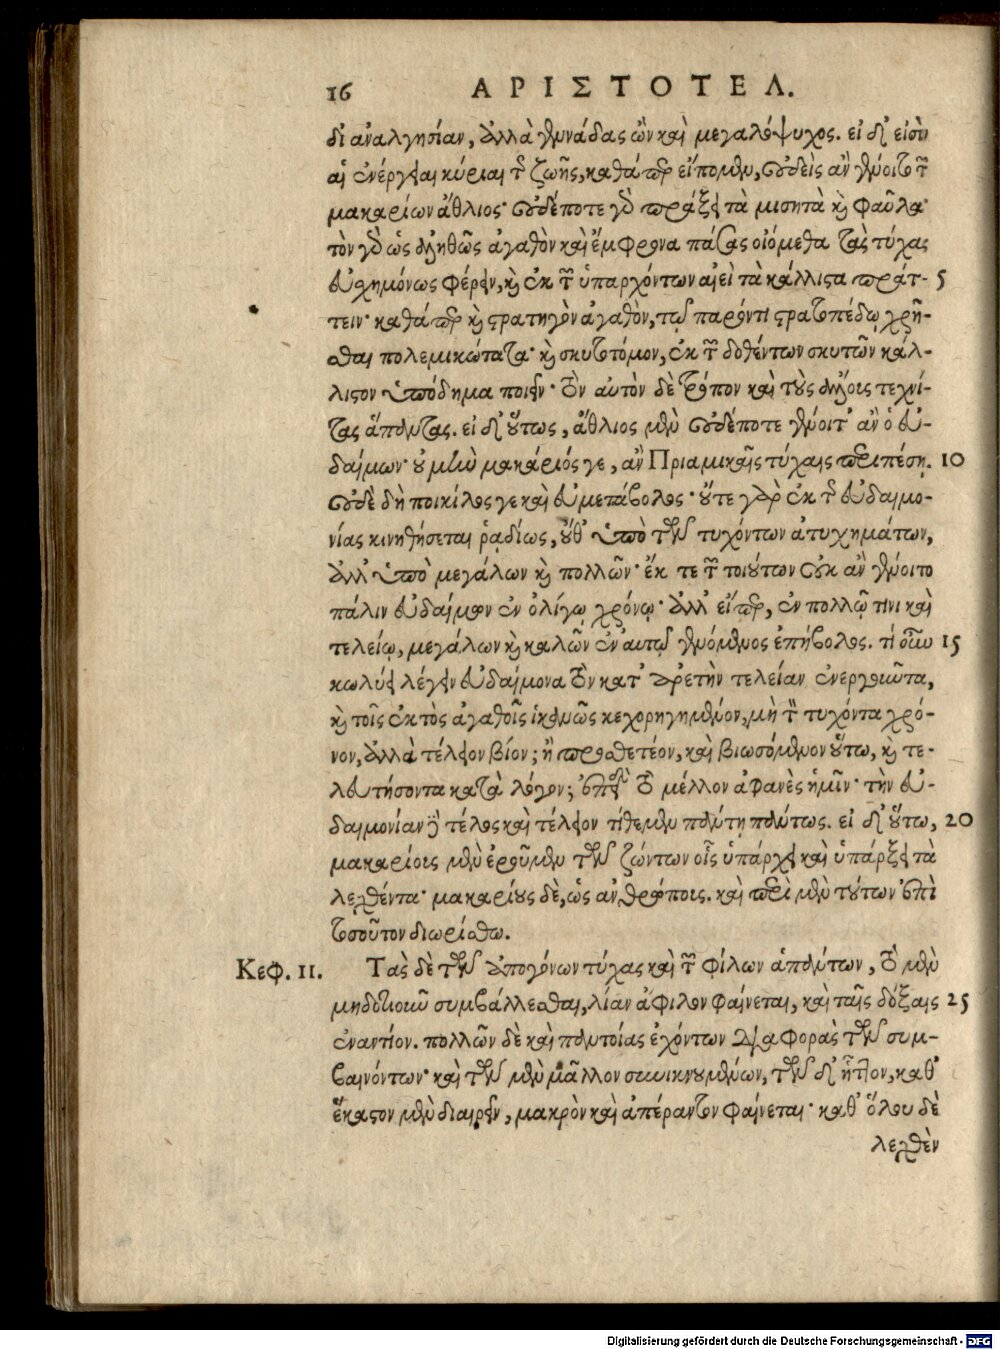 16 ΑΡΙΣΤΟΤΕΛ.
δι ἀναλγησίαν, ἀλλὰ γεννάδας ὢν καὶ μεγαλόψυχος. εἰ δ' εἰσὶν
αἱ ἐνέργειαι κύριαι τῆς ζωῆς, καθάπερ εἴπομεν, οὐδεὶς ἂν γένοιτο τῶν
μακαρίων ἄθλιος· οὐδέποτε γὰρ πράξει τὰ μισητὰ καὶ φαῦλα·
τὸν γὰρ ὡς ἀληθῶς ἀγαθὸν καὶ ἔμφρονα πάσας οἰόμεθα τὰς τύχας
εὐσχημόνως φέρειν, καὶ ἐκ τῶν ὑπαρχόντων αἰεὶ τὰ κάλλιστα πράτ- 5
τειν· καθάπερ καὶ στρατηγὸν ἀγαθὸν, τῷ παρόντι στρατοπέδῳ χρῆ-
σθαι πολεμικώτατα· καὶ σκυτοτόμον, ἐκ τῶν δοθέντων σκυτῶν κάλ-
λιστον ὑπόδημα ποιεῖν· τὸν αὐτὸν δὲ τρόπον καὶ τοὺς ἄλλους τεχνί-
τας ἅπαντας. εἰ δ' οὕτως, ἄθλιος μὲν οὐδέποτε γένοιτ' ἂν ὁ εὐ-
δαίμων· οὐ μὴν μακάριός γε, ἂν Πριαμικαῖς τύχαις περιπέσῃ. 10
οὐδὲ δὴ ποικίλος γε καὶ εὐμετάβολος· οὔτε γὰρ ἐκ τῆς εὐδαιμο-
νίας κινηθήσεται ῥαδίως, οὔθ' ὑπὸ τῶν τυχόντων ἀτυχημάτων,
ἀλλ' ὑπὸ μεγάλων καὶ πολλῶν· ἔκ τε τῶν τοιούτων οὐκ ἂν γένοιτο
πάλιν εὐδαίμων ἐν ὀλίγῳ χρόνῳ· ἀλλ' εἴπερ, ἐν πολλῷ τινι καὶ
τελείῳ, μεγάλων καὶ καλῶν ἐν αὐτῷ γενόμενος ἐπήβολος. τί οὖν 15
κωλύει λέγειν εὐδαίμονα τὸν κατ' ἀρετὴν τελείαν ἐνεργοῦντα,
καὶ τοῖς ἐκτὸς ἀγαθοῖς ἱκανῶς κεχορηγημένον, μὴ τὸν τυχόντα χρό-
νον, ἀλλὰ τέλειον βίον; ἢ προσθετέον, καὶ βιωσόμενον οὕτω, καὶ τε-
λευτήσοντα κατὰ λόγον; ἐπειδὴ τὸ μέλλον ἀφανὲς ἡμῖν· τὴν εὐ-
δαιμονίαν δὲ τέλος καὶ τέλειον τίθεμεν πάντη πάντως. εἰ δ' οὕτω, 20
μακαρίους μὲν ἐροῦμεν τῶν ζώντων οἷς ὑπάρχει καὶ ὑπάρξει τὰ
λεχθέντα· μακαρίους δὲ, ὡς ἀνθρώποις. καὶ περὶ μὲν τούτων ἐπὶ
τοσοῦτον διωρίσθω.
Κεφ. 11. Τὰς δὲ τῶν ἀπογόνων τύχας καὶ τῶν φίλων ἁπάντων, τὸ μὲν
μηδοτιοῦν συμβάλλεσθαι, λίαν ἄφιλον φαίνεται, καὶ ταῖς δόξαις 25
ἐναντίον. πολλῶν δὲ καὶ παντοίας ἐχόντων διαφορὰς τῶν συμ-
βαινόντων· καὶ τῶν μὲν μᾶλλον συνικνουμένων, τῶν δ' ἧττον, καθ'
ἕκαστον μὲν διαιρεῖν, μακρὸν καὶ ἀπέραντον φαίνεται· καθ' ὅλου δὲ
λεχθὲν
Digitalisierung gefördert durch die Deutsche Forschungsgemeinschaft - DFG